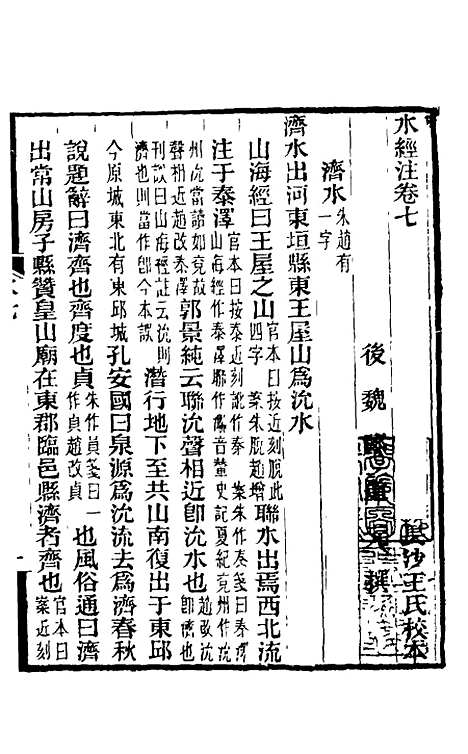 水經注卷七
後魏 撰
長沙王氏校本
濟水 朱趙有一字
濟水出河東垣縣東王屋山爲沇水
山海經曰王屋之山 官本曰按近刻脫此四字 案朱脫趙增 聯水出焉西北流
注于泰澤 官本曰按泰近刻訛作秦 案朱作秦箋曰秦澤山海經作泰澤聯作音輦史記夏紀兗州作沇
州沇當讀如兗故聲相近趙改泰澤 郭景純云聯沇聲相近卽沇水也 趙改沇卽濟也
刊誤曰山海經注云沇則濟也則當作卽今本誤 潛行地下至共山南復出于東邱
今原城東北有東邱城孔安國曰泉源爲沇流去爲濟春秋
說題辭曰濟齊也齊度也貞 朱作員箋曰一作貞趙改貞 也風俗通曰濟
出常山房子縣贊皇山廟在東郡臨邑縣濟者齊也 官本曰案近刻